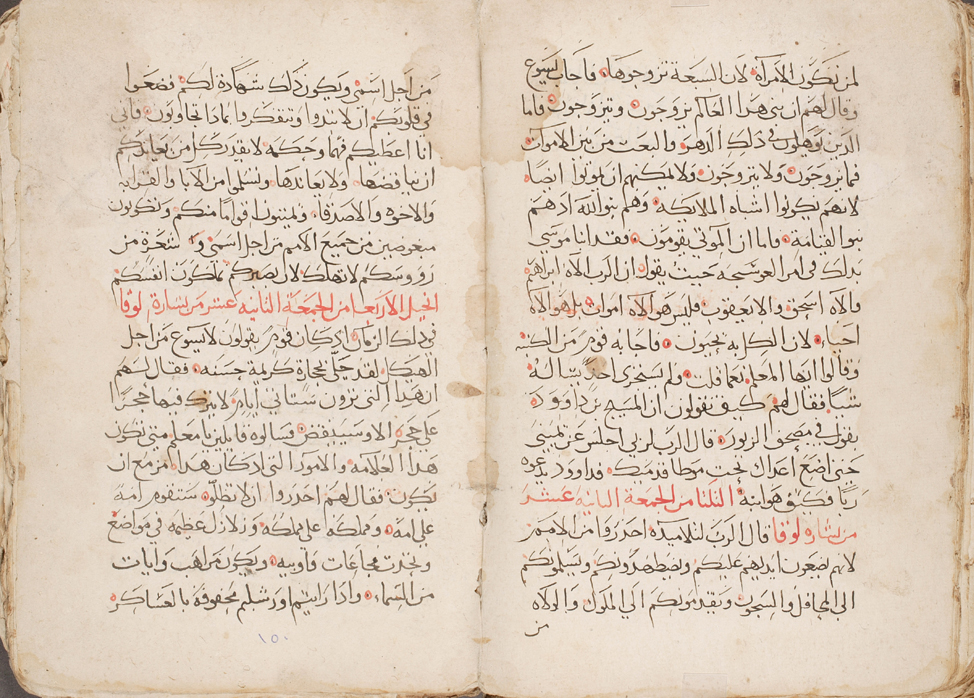 لمن تكون الامرأة لان السبعة تزوجوها فاجاب يسوع
وقال لهم ان بني هذا العالم يزوجون ويتزوجون فاما
الذين يوهلون ذلك الدهر والبعث من بين الاموات
فما يزوجون ولا يتزوجون ولا يمكنهم ان يموتوا ايضا
لانهم يكونوا اشباه الملايكة وهم بنو الله اذ هم
بنو القيامة واما ان الموتى يقومون فقد انا موسى
بذلك في امر العوسجه حيث يقول ان الرب الاه ابراهيم
والاه اسحق والا يعقوب فليس هو الاه اموات بل هو الاه
احياء لان الكل به يحيون فاجابه قوم من الكتبه
وقالوا ايها المعلم نعما قلت ولم يستجرى احد يساله
شيا فقال لهم كيف تقولون ان المسيح بن داوود
يقول في مصحف الزبور قال الرب لربي اجلس عن يميني
حتى اضع اعداك تحت موطا قدميك فداوود يدعوه
ربا فكيف هو ابنه الثلثا من الجمعة الثانيه عشر
من بشاره لوقا قال الرب لتلاميذه احذروا من الامم
لانهم يضعون ايديهم عليكم ويضطهدونكم ويسلمونكم
الى المحافل والسجون ويقدمونكم الى الملوك والولاه
من
من اجل اسمي ويكون ذلك شهادة لكم فضعوا
في قلوبكم ان لا تبدوا وتتفكروا بماذا تجاوبون فاني
انا اعطيكم فما وحكمه لا يقدر كل من يعاندكم
ان يناقضها ولا يعاندها وتسلموا من الابا والقرابه
والاخوه والاصدقا ويميتون اقواما منكم وتكونون
مبغوضين من جميع الامم من اجل اسمي و شعرة من
رووسكم لا تهلك لان بصبركم تملكون انفسكم
انجيل الاربعا من الجمعة الثانيه عشر من بشارة لوقا
في ذلك الزمان اذ كان قوم يقولون لايسوع من اجل
الهيكل لقد حلي بحجارة كريمه حسنه فقال لهم
ان هذا التي ترون ستاتي ايام لا يترك فيها حجرا
على حجر الا وسينقض فسالوه قايلين يا معلم متى تكون
هذا العلامه والامور التي اذ كان هذا مزمع ان
يكون فقال لهم احذروا ان لا تظلو ستقوم امة
على امة ومملكه على مملكه وزلازل عظيمه في مواضع
وتحدث مجاعات واوبيه ويكون مراهب وايات
من السماء واذا رايتم اورشليم محفوفة بالعساكر
١٥٠